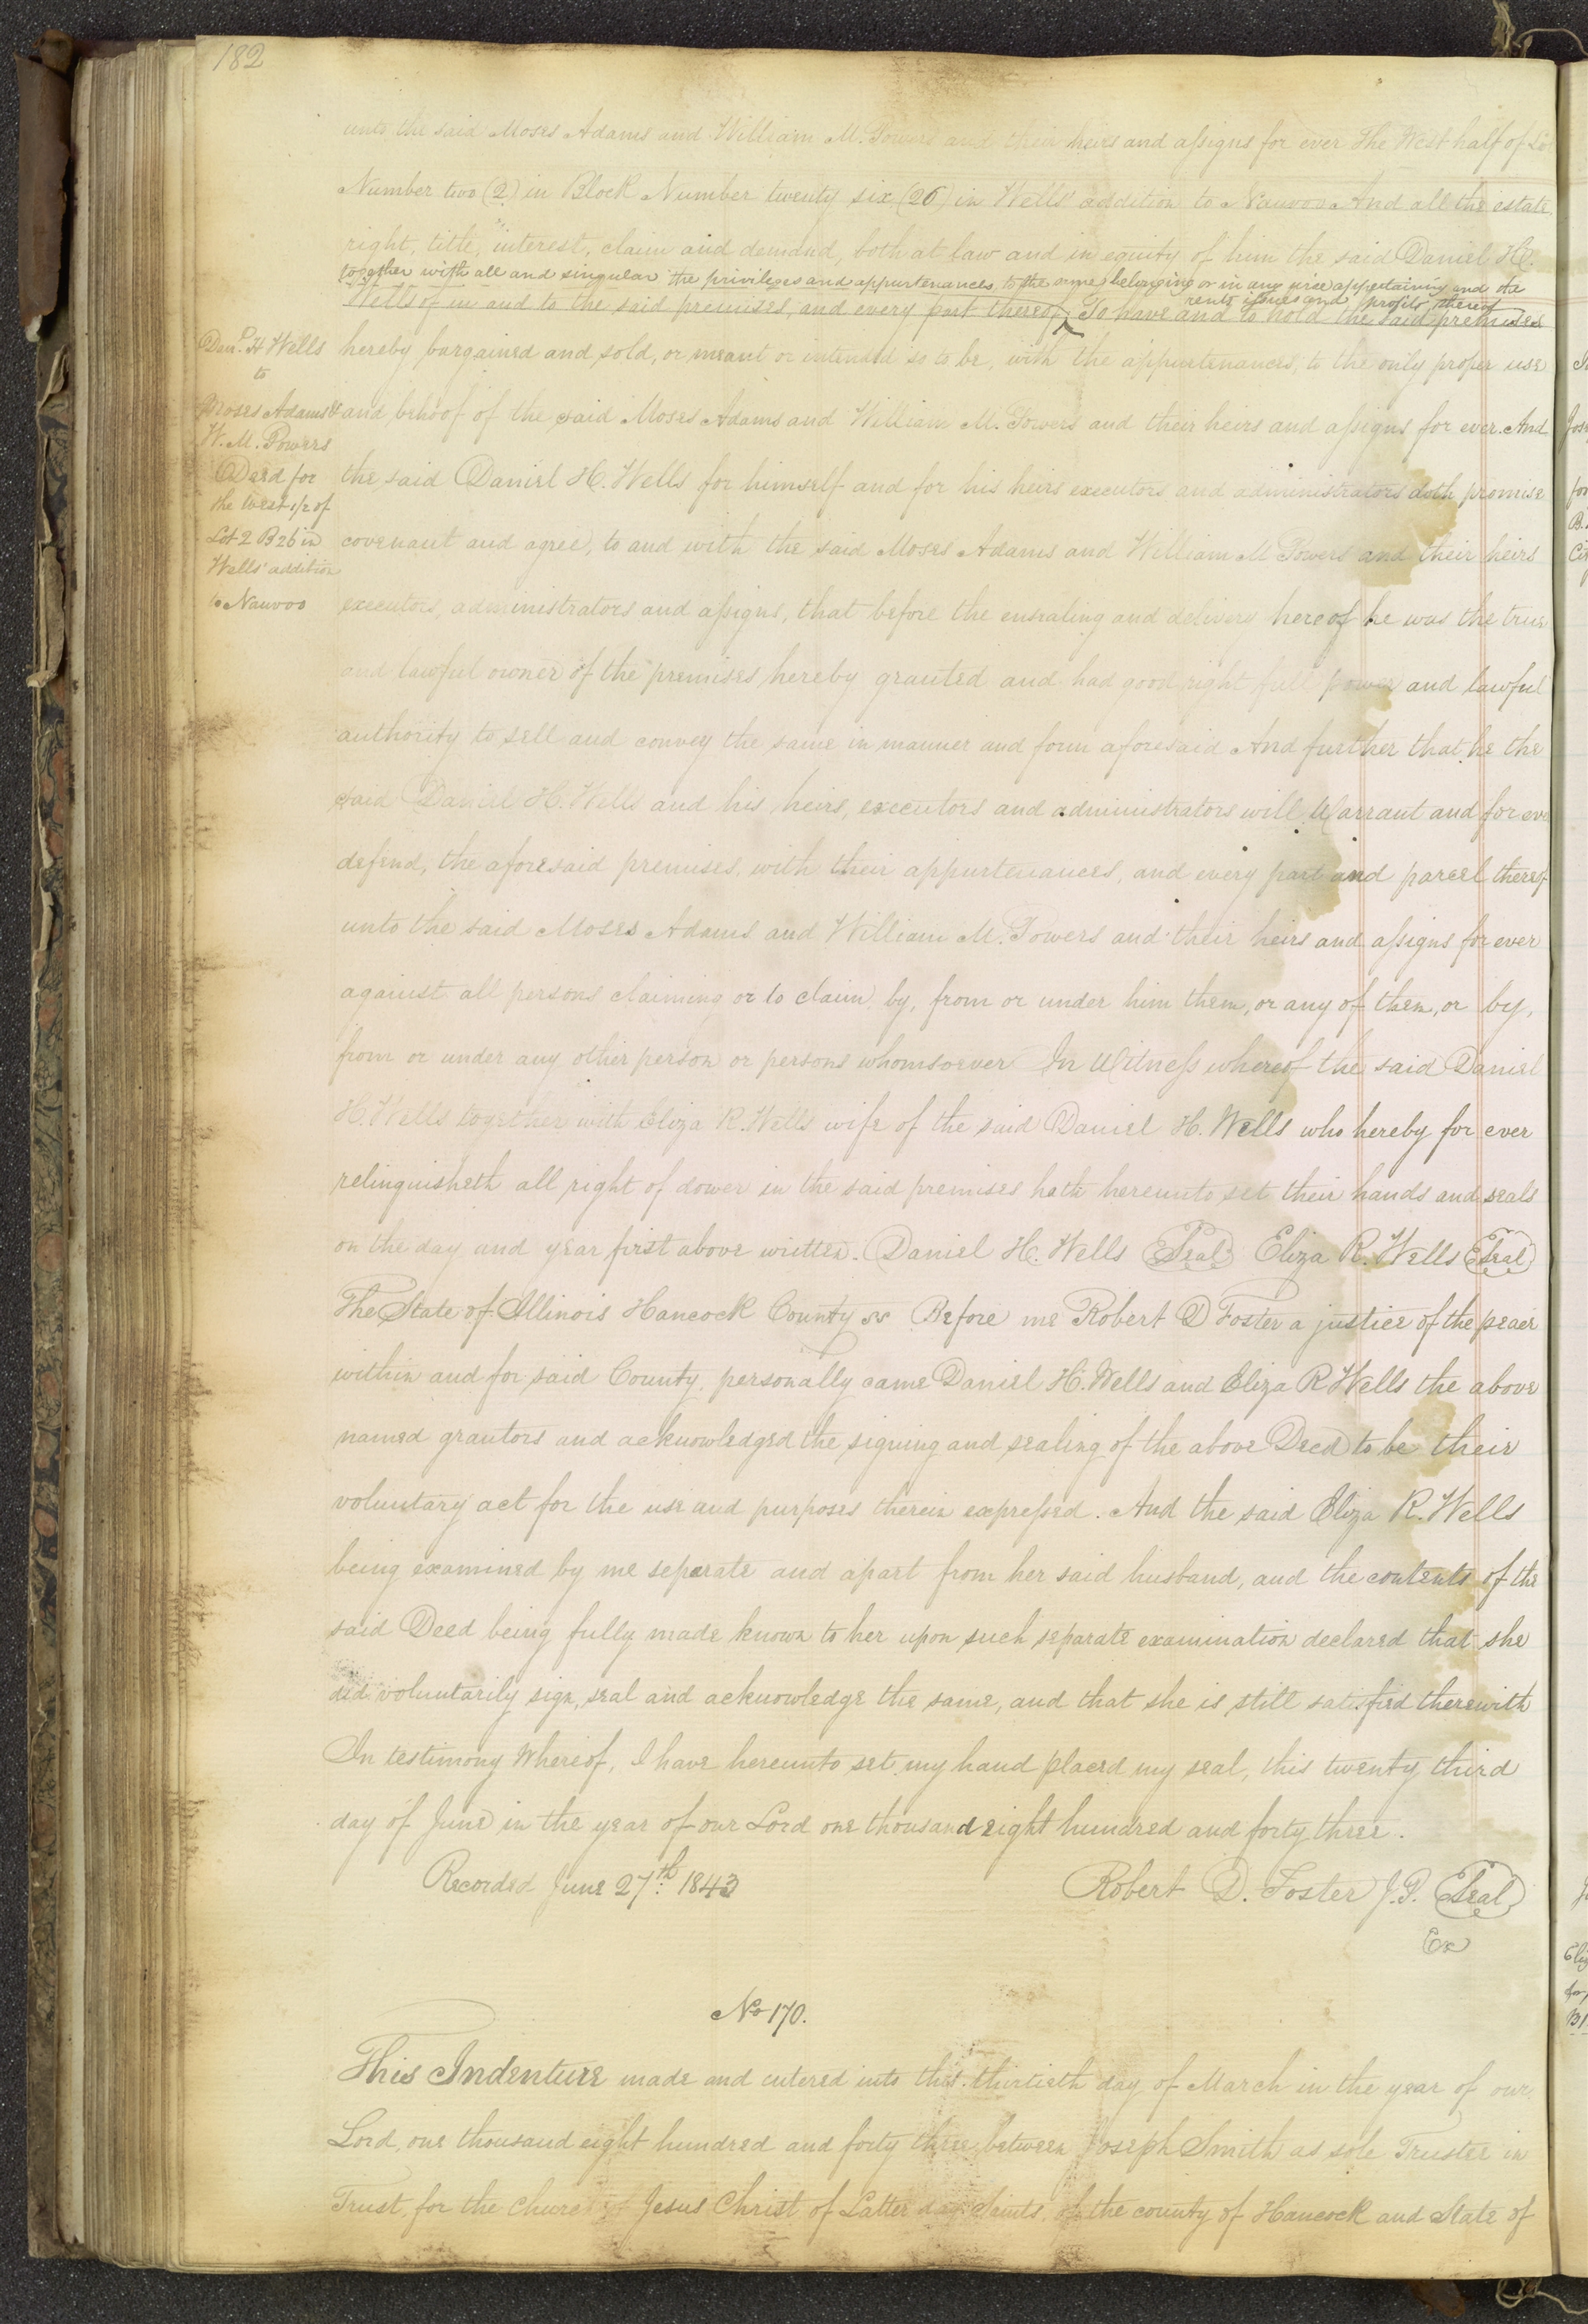 182
unto the said Moses Adams and William M. Powers and their heirs and assigns for ever the West half of Lo
Number two (2) in Block Number twenty six (26) in Wells' addition to Nauvoo And all the estate
right, title, interest, claim and demand, both at law and in equity of him the said Daniel H.
together with all and singular the privileges and appurtenances to the same belonging or in any wise appertaining and the
rents issues and profits thereof
Wells of in and to the said premises, and every part thereof, ^ To have and to hold the said premises
hereby bargained and sold, or meant or intended so to be, with the appurtenances, to the only proper use
and behoof of the said Moses Adams and William M. Powers and their heirs and assigns for ever. And
the said Daniel H. Wells for himself and for his heirs executors and administrators doth promise
covenant and agree, to and with the said Moses Adams and William M Powers and their heirs
executors, administrators and assigns, that before the ensealing and delivery hereof he was the true
and lawful owner of the premises hereby granted and had good right full power and lawful
authority to sell and convey the same in manner and form aforesaid And further that he the
said Daniel H. Wells and his heirs, executors and administrators will Warrant and for eve
defend, the aforesaid premises, with their appurtenances, and every part and parcel thereof
unto the said Moses Adams and William M. Powers and their heirs and assigns for ever
against all persons claiming or to claim by, from or under him them, or any of them, or by,
from or under any other person or persons whomsoever In Witness whereof the said Daniel
H. Wells together with Eliza R. Wells wife of the said Daniel H. Wells who hereby for ever
relinquisheth all right of dower in the said premises hath hereunto set their hands and seals
on the day and year first above written. Daniel H. Wells Seal Eliza R. Wells Seal
The State of Illinois Hancock County ss Before me Robert D Foster a justice of the peace
within and for said County, personally came Daniel H. Wells and Eliza R Wells the above
named grantors and acknowledged the signing and sealing of the above Deed to be their
voluntary act for the use and purposes therein expressed. And the said Eliza R. Wells
being examined by me separate and apart from her said husband, and the contents of the
said Deed being fully made known to her upon such separate examination declared that she
did voluntarily sign, seal and acknowledge the same, and that she is still satisfied therewith
In testimony Whereof, I have hereunto set my hand placed my seal, this twenty third
day of June in the year of our Lord one thousand eight hundred and forty three.
Recorded June 27th 1843 Robert D. Foster J.P. Seal
Ex
Danl. H Wells
to
Moses Adams &
W. M. Powers
Deed for
the West 1/2 of
Lot 2 B 26 in
Wells' addition
to Nauvoo
No 170.
This Indenture made and entered into this thirtieth day of March in the year of our
Lord, one thousand eight hundred and forty three between Joseph Smith as sole Trustee in
Trust, for the Church of Jesus Christ of Latter day Saints, of the county of Hancock and State of